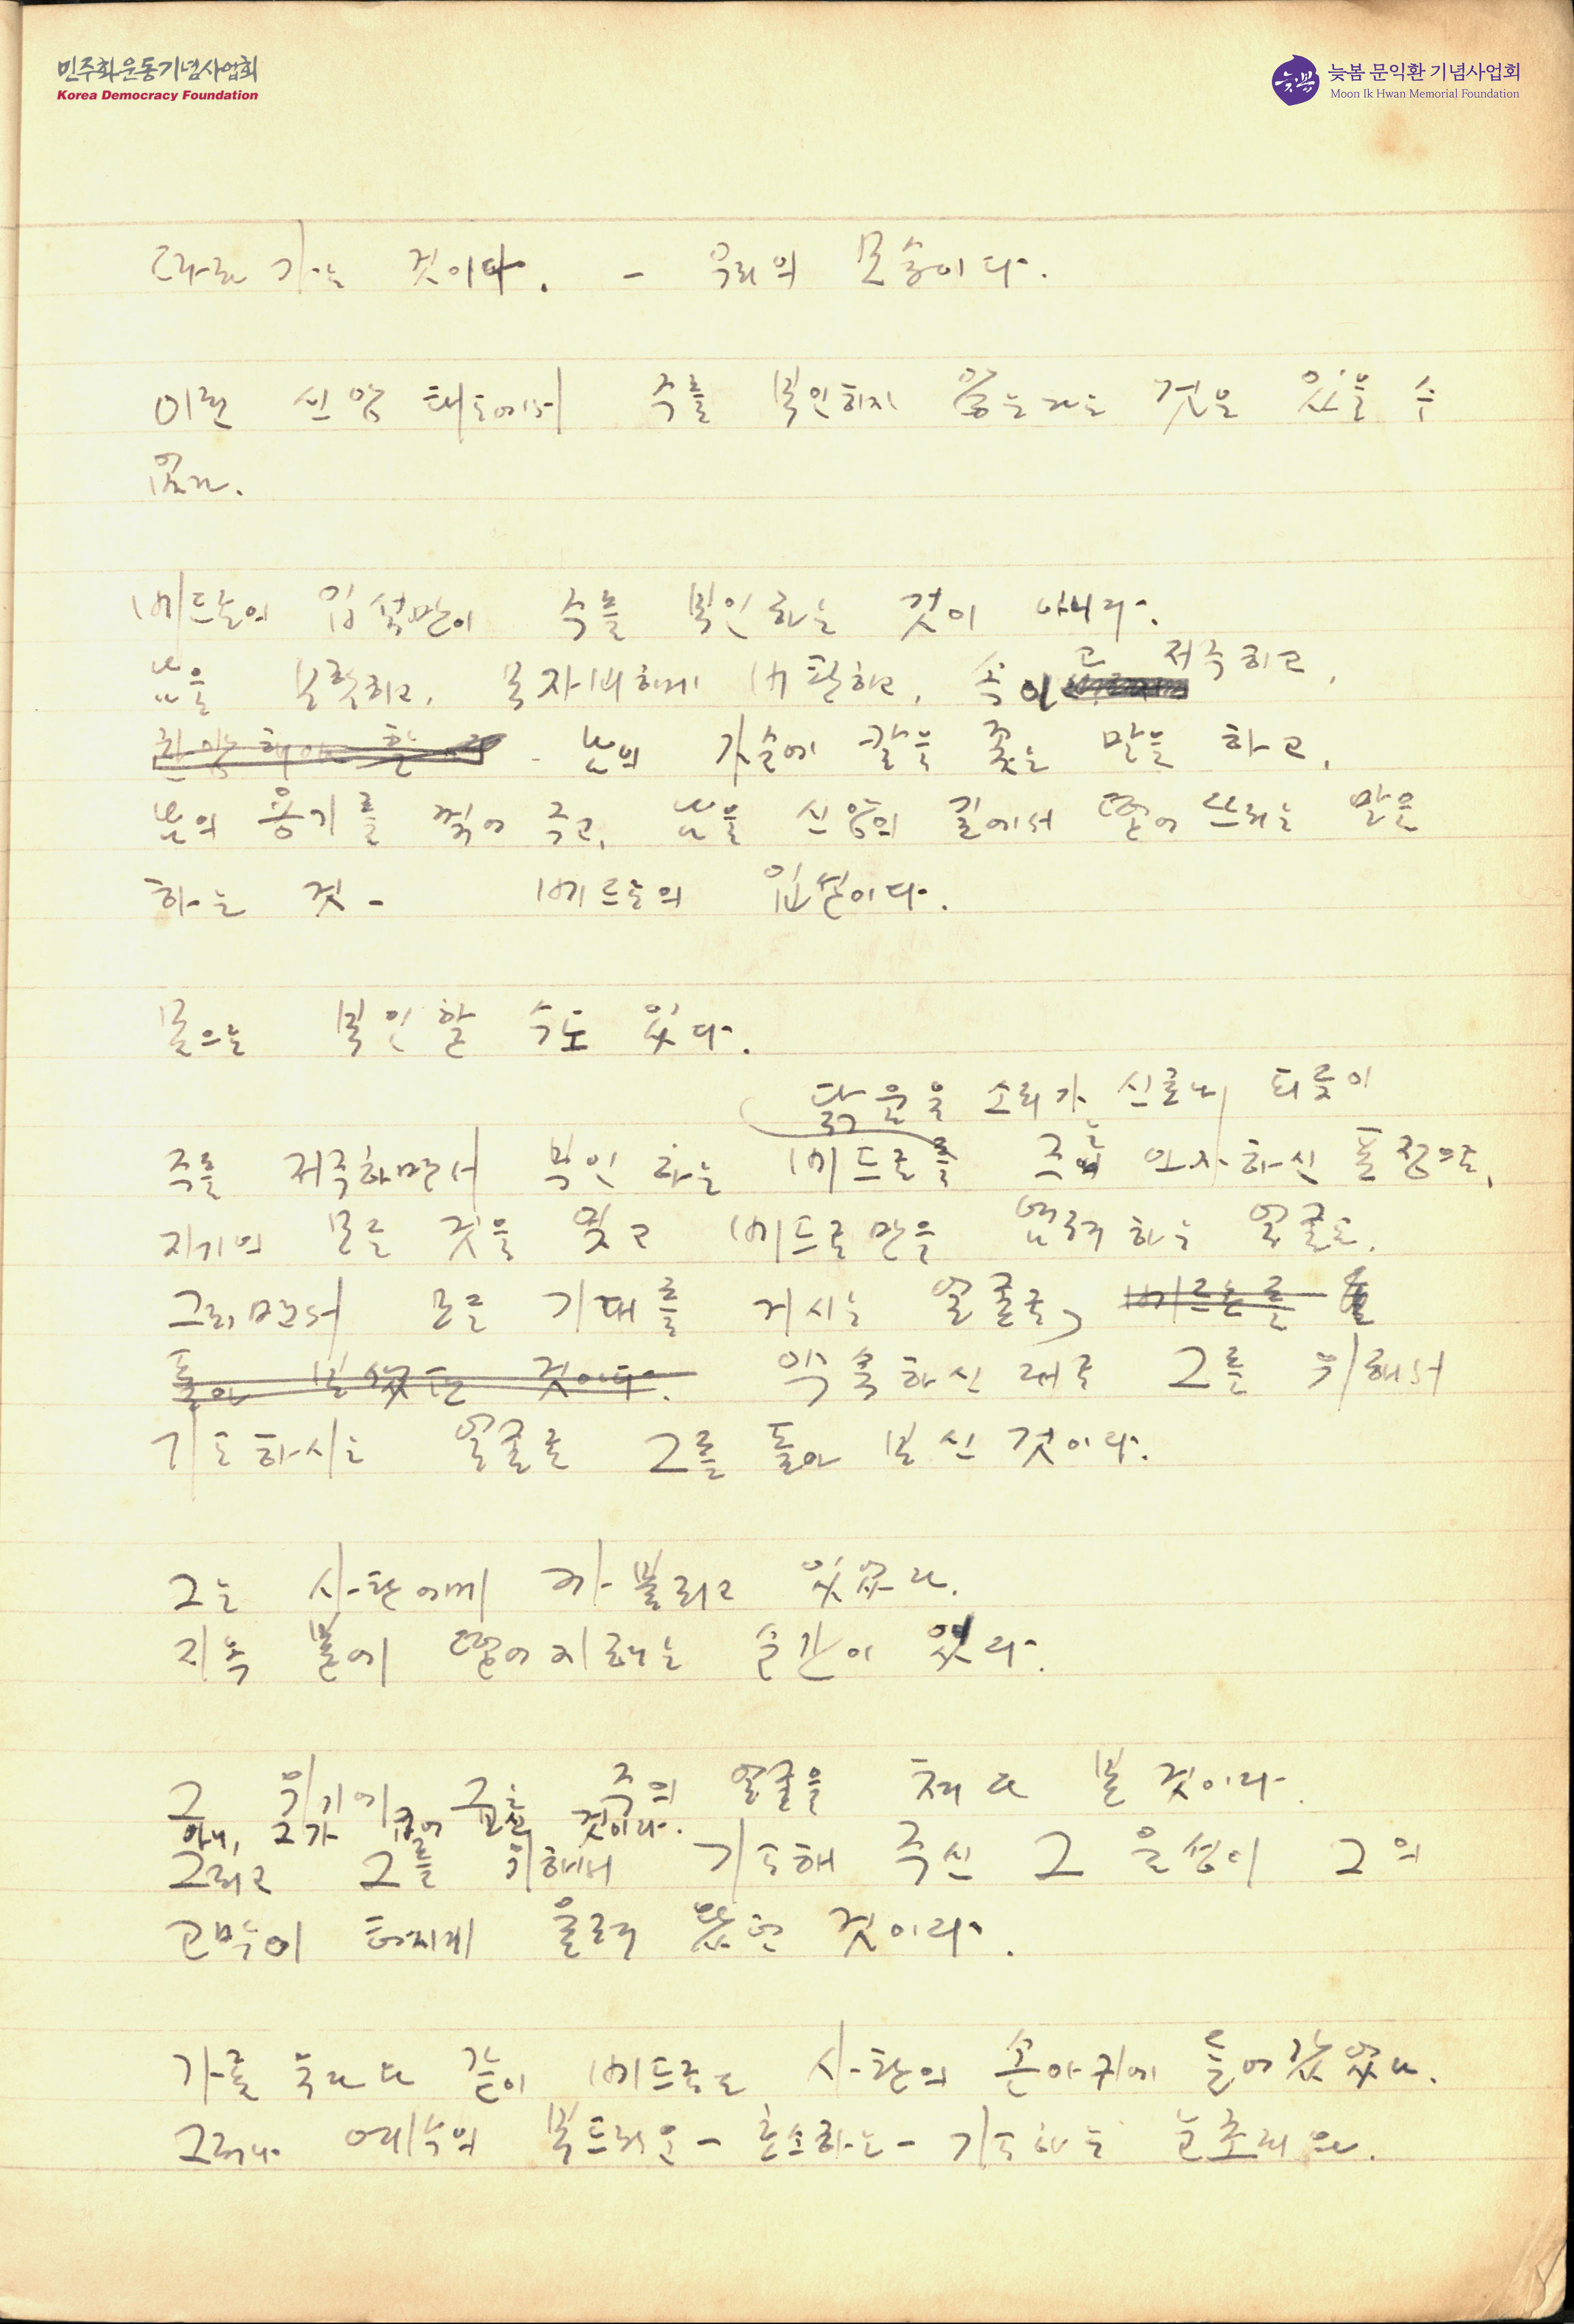 민주화운동기념사업회
Korea Democracy Foundation
늦봄 문익환 기념사업회
Moon Ik Hwan Memorial Foundation
따라 가는 것이다. - 우리의 모습이다.
이런 신앙 태도에서 주를 부인하지 않는다는 것은 있을 수
없다.
베드로의 입술만이 주를 부인하는 것이 아니다.
고 저주하고,
남을 모략하고, 무자비하게 비판하고, 속이
남의 가슴에 칼을 꽂는 말을 하고,
남의 용기를 꺾어 주고, 남을 신앙의 길에서 떨어뜨리는 말을
하는 것 - 베드로의 입술이다.
몸으로 부인할 수도 있다.
닭 우는 소리가 신호나 되듯이
주를 저주하면서 부인하는 베드로를 주는 인자하신 표정으로,
자기의 모든 것을 잊고 베드로만을 염려하는 얼굴로,
그러면서 모든 기대를 거시는 얼굴로, 베드로를
돌아 보셨던 것이다. 약속하신 대로 그를 위해서
기도하시는 얼굴로 그를 돌아 보신 것이다.
그는 사탄에게 까불리고 있었다.
지옥 불에 떨어지려는 순간이 었다.
그 위기에 그는 주의 얼굴을 쳐다 본 것이다.
아니, 그가 것이다.
그리고 그를 위해서 기도해 주신 그 음성이 그의
고막이 터지게 울려 왔던 것이다.
가룟 유다와 같이 베드로도 사탄의 손아귀에 들어갔었다.
그러나 예수의 부드러운 - 호소하는 - 기도하는 눈초리와,